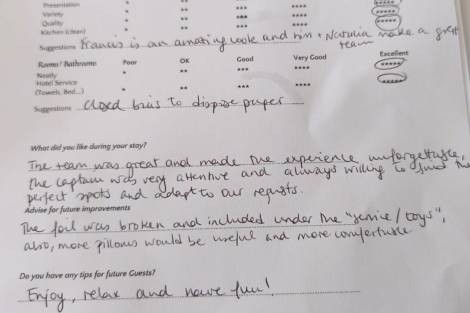 Presentation * ** *** **** *****
Variety * ** *** **** *****
Quality * ** *** **** *****
Kitchen (clean) * ** *** **** *****
Suggestions Francis is an amazing cook and him + Natalia make a great
team
Rooms/ Bathrooms Poor OK Good Very Good Excellent
Neatly * ** *** **** *****
Hotel Service
(Towels, Bed...) * ** *** **** *****
Suggestions closed bins to dispose paper
What did you like during your stay?
The team was great and made the experience unforgettable,
the captain was very attentive and always willing to find the
perfect spots and adapt to our requests.
Advise for future improvements
The foil was broken and included under the "service/toys",
also, more pillows would be useful and more comfortable
Do you have any tips for future Guests?
Enjoy, relax and have fun!